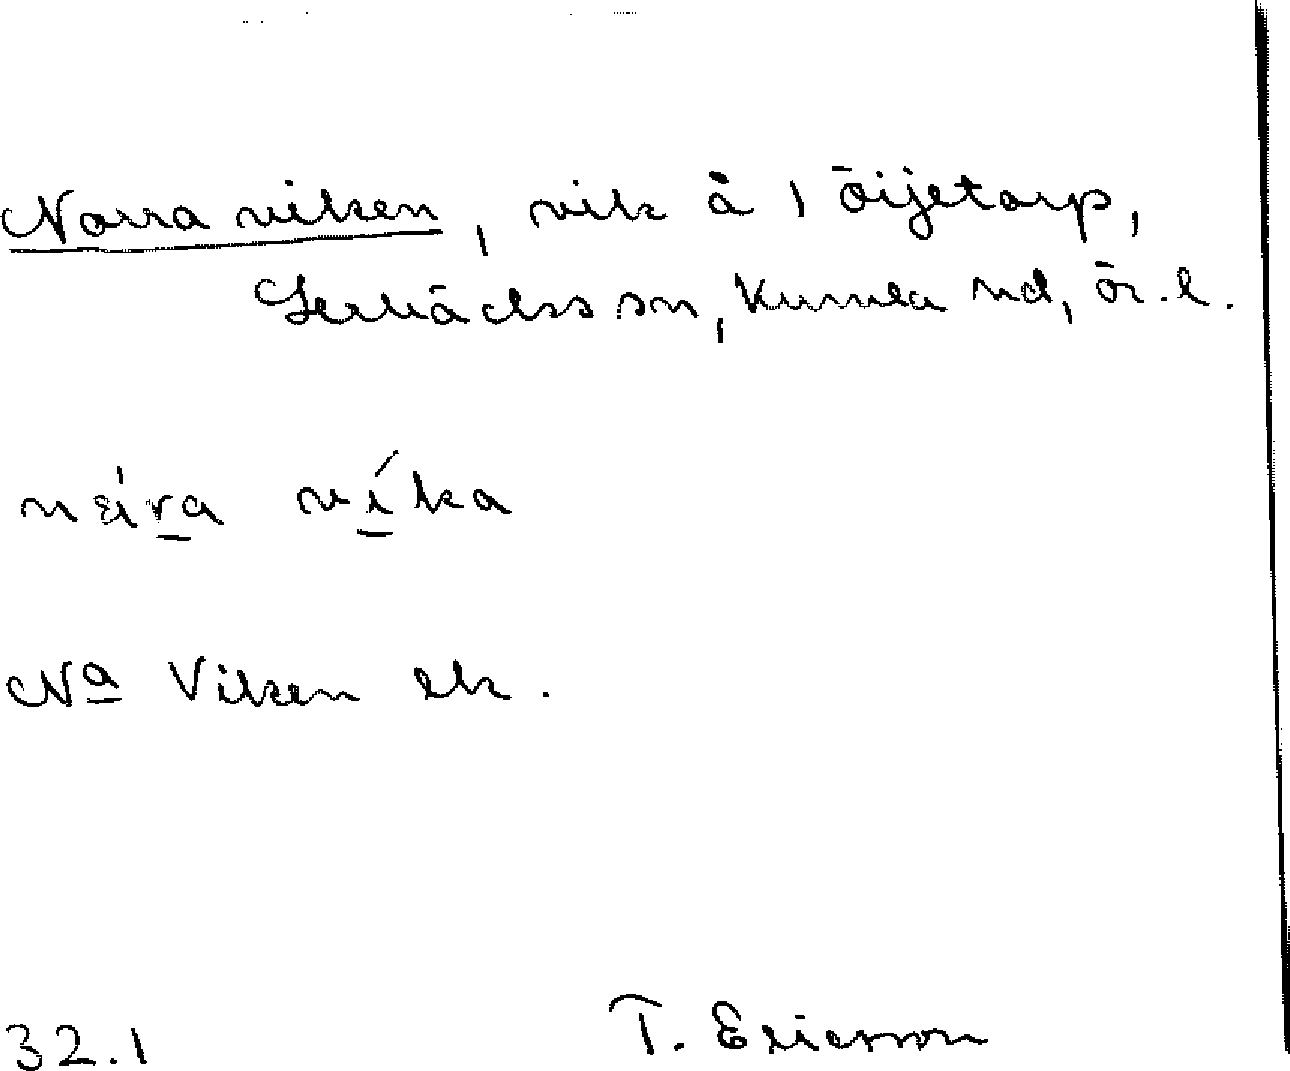 Norra viken, vik å 1 Öijetorp,
Lerbäcks sn, Kumla hd, Ör. l.
víka
Nª Viken ek.
32.1
T. Ericsson